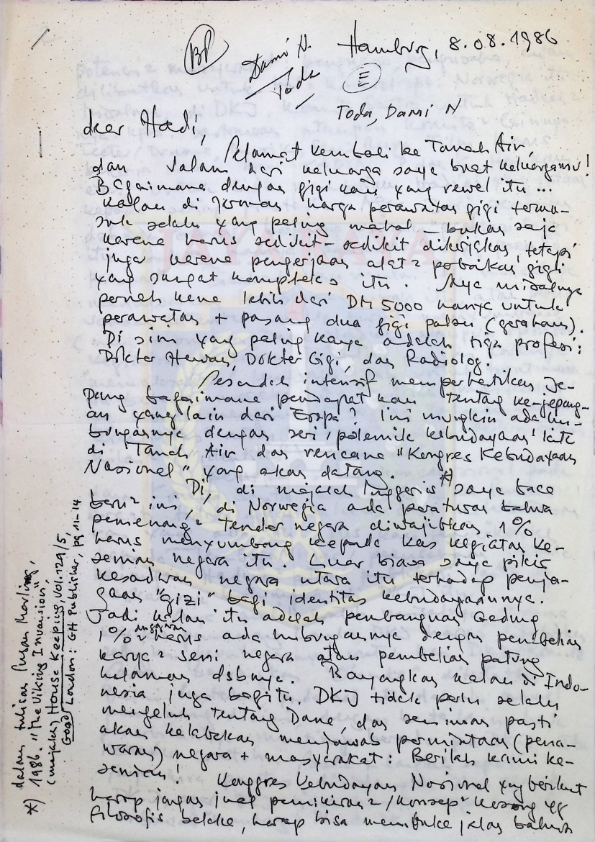 BP
Dami N. Toda
Hamburg, 8.08.1986
E
Toda, Dami N
dear Hadi,
Selamat kembali ke Tanah Air,
dan salam dari keluarga saya buat keluargamu!
Bagaimana dengan gigi kau yang rewel itu ...
Kalau di Jerman harga perawatan gigi terma-
suk selalu yang paling mahal - bukan saja
karena harus sedikit-sedikit dikerjakan, tetapi
juga karena pengerjaan alat2 perbaikan gigi
yang sangat kompleks itu. Saya misalnya
pernah kena lebih dari DM 5000 hanya untuk
perawatan + pasang dua gigi palsu (geraham).
Di sini yang paling kaya adalah tiga profesi:
Dokter Hewan, Dokter Gigi, dan Radiolog.
Sesudah intensif memperhatikan Je-
pang bagaimana pendapat kau tentang ke-jepang-
an yang lain dari Eropa? Ini mungkin ada hu-
bungannya dengan seri/polemik kebudayaan kita
di Tanah Air dan rencana "Kongres Kebudayaan
Nasional" yang akan datang.
Di, di majalah Inggeris *) saya baca
baru2 ini, di Norwegia ada peraturan bahwa
pemenang2 tender negara diwajibkan 1%
harus menyumbang kepada kas kegiatan ke-
senian negara itu. Luar biasa saya pikir
kesadaran negara utara itu terhadap penja-
gaan "gizi" bagi identitas kebudayaannya.
Jadi kalau itu adalah pembangunan Gedung
1% harus ada hubungannya dengan pembelian
karya2 seni negara atau pembelian patung
halaman dsbnya. Bayangkan kalau di Indo-
nesia juga begitu. DKJ tidak perlu selalu
mengeluh tentang Dana, dan seniman pasti
akan kelabakan menjawab permintaan (pena-
waran) negara + masyarakat: Berilah kami ke-
senian! Konggres Kebudayaan Nasional yang berikut
harap jangan jual pemikiran2/konsep2 kosong yg
filosofis belaka, harap bisa membuka jalan bahwa
*) dalam tulisan Susan
1986. "The Viking Invansion",
(majalah Good House Keeping, Vol. 129/5,
London: GH Publisher, pg 11-14